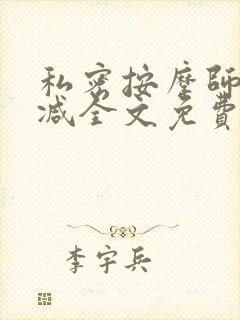 私密按摩師
减全文免費
李宇兵